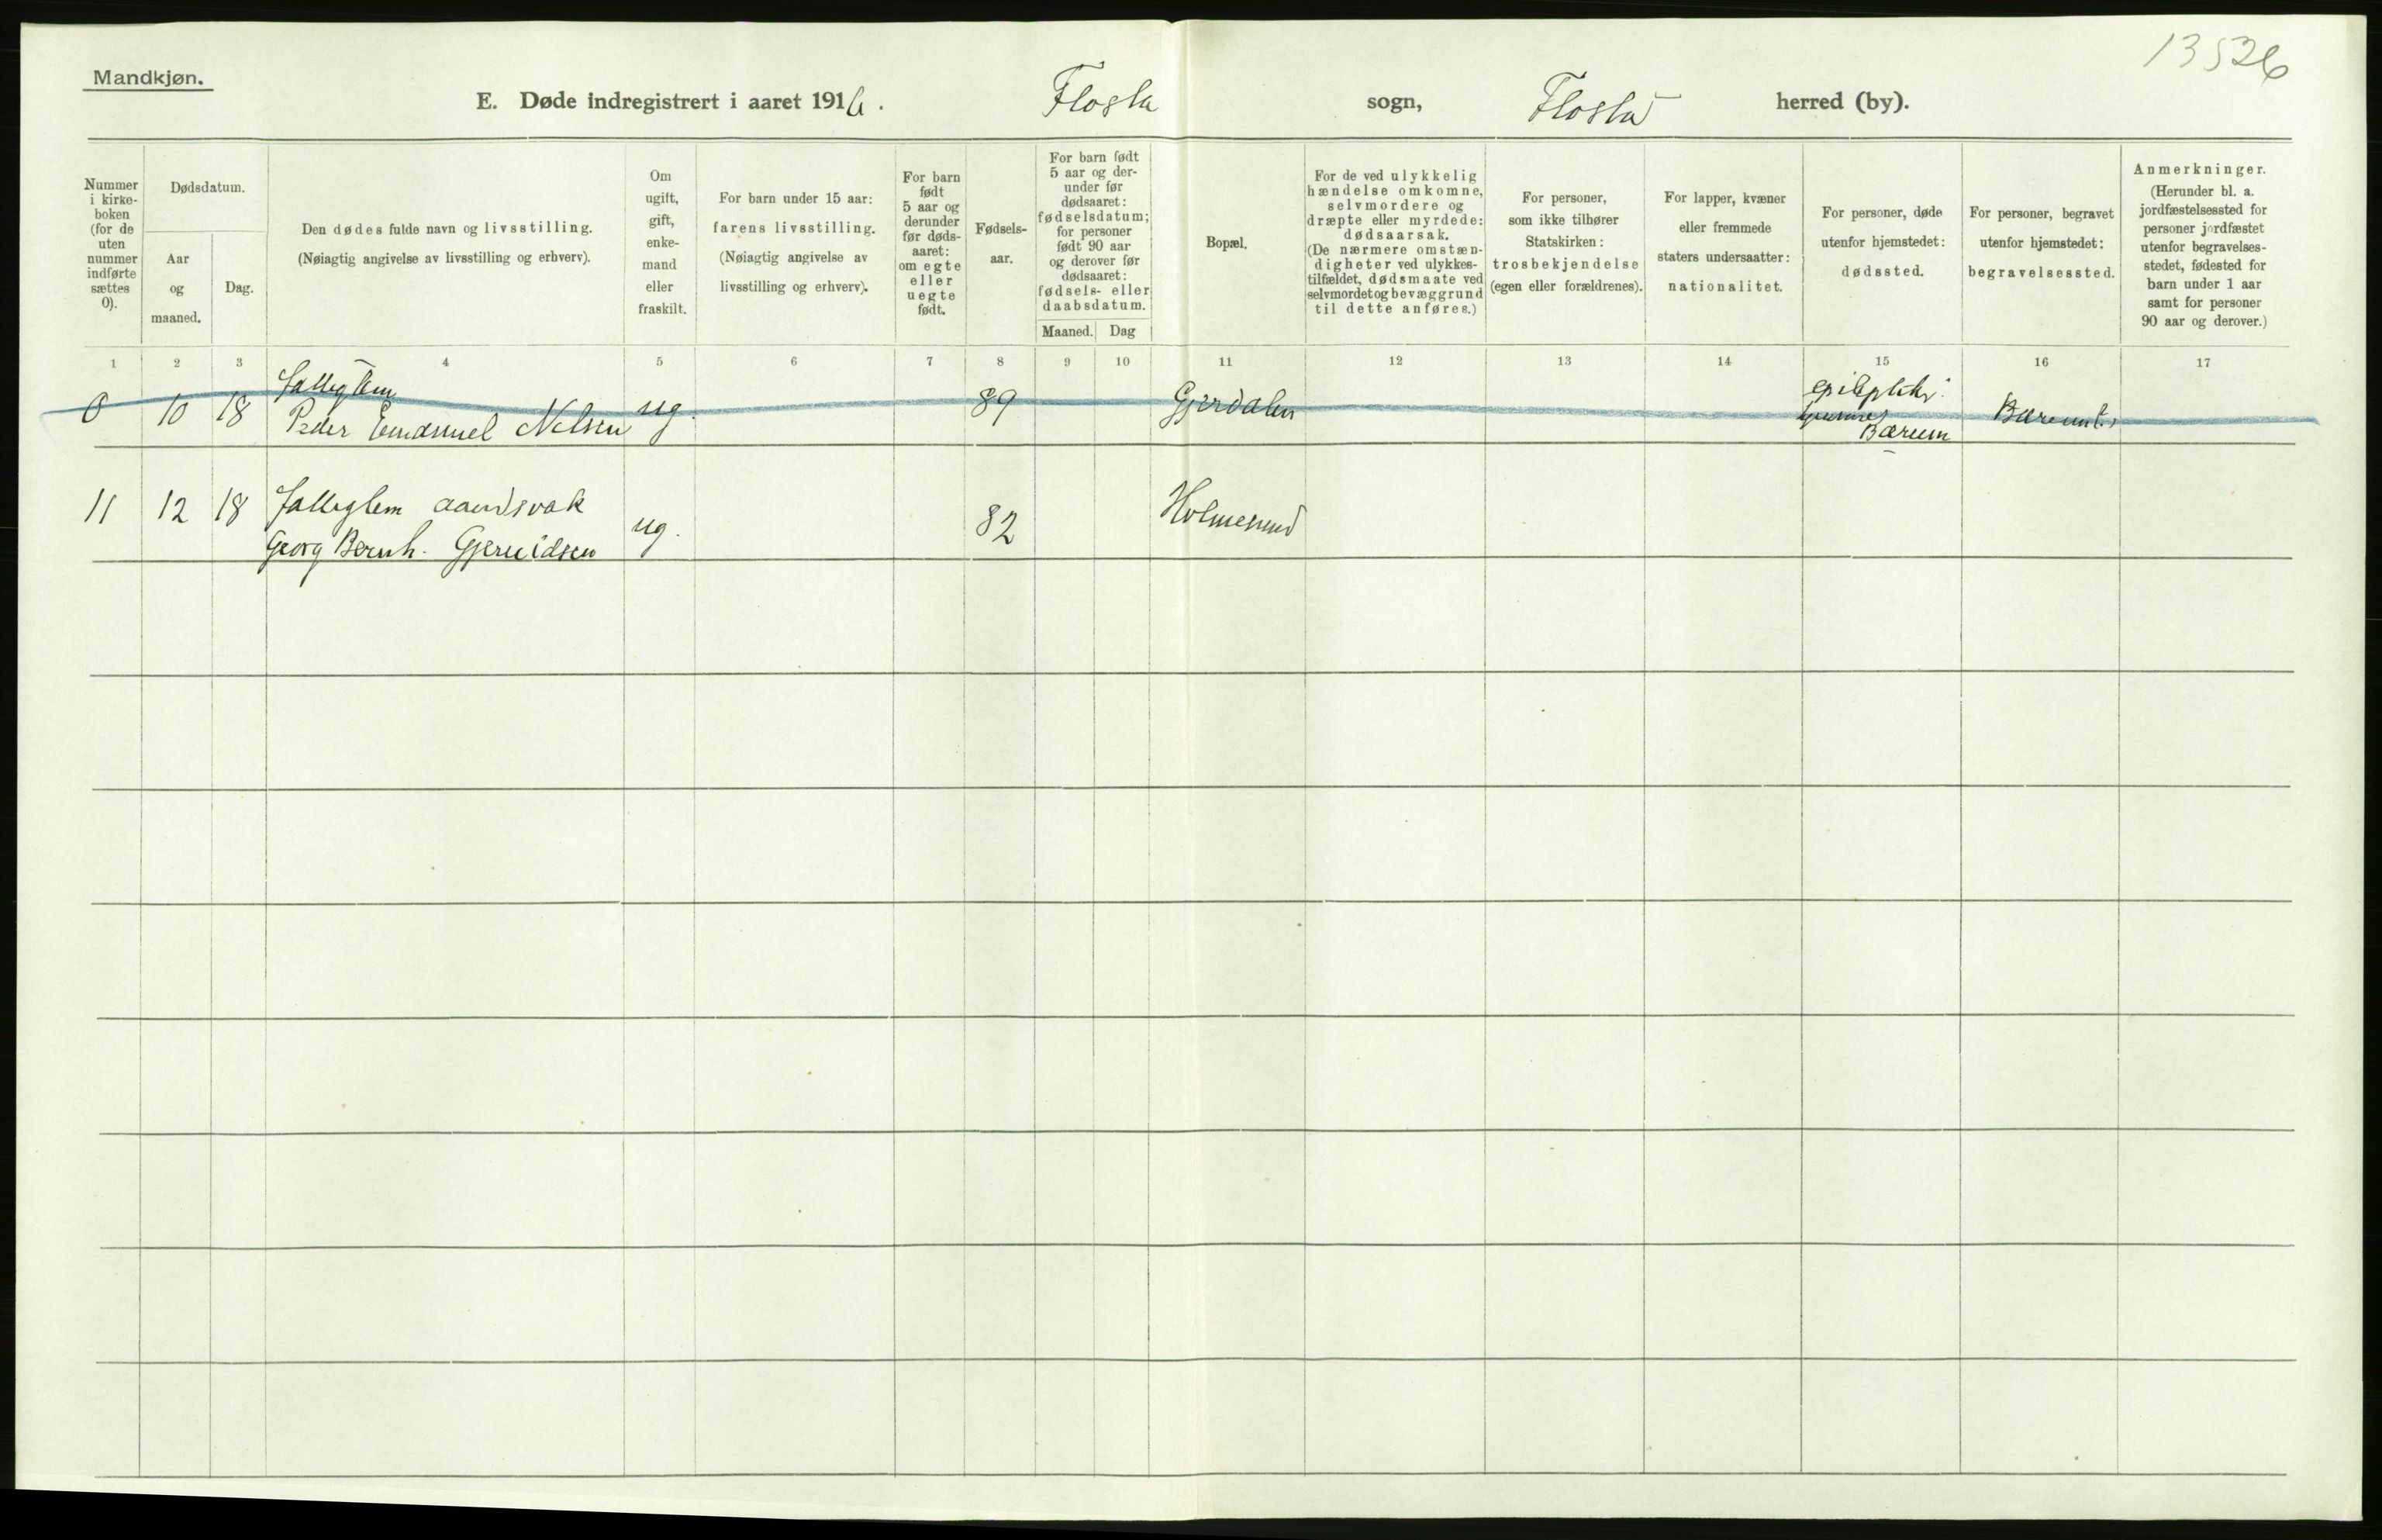 13526
Mandkjøn.
E. Døde indregistrert i aaret 1916. Flosta sogn, Flosta herred (by).
Nummer
i kirke-
boken
(for de
uten
nummer
indførte
sættes
0).
Dødsdatum.
Aar
og
maaned.
Dag.
Den dødes fulde navn og livsstilling.
(Nøiagtig angivelse av livsstilling og erhverv).
Om
ugift,
gift,
enke-
mand
eller
fraskilt.
For barn under 15 aar:
farens livsstilling.
(Nøiagtig angivelse av
livsstilling og erhverv).
For barn
født
5 aar og
derunder
før døds-
aaret:
om egte
eller
uegte
født.
Fødsels-
aar.
For barn født
5 aar og der-
under før
dødsaaret:
fødselsdatum;
for personer
født 90 aar
og derover før
dødsaaret:
fødsels- eller
daabsdatum.
Maaned. Dag
Bopæl.
For de ved ulykkelig
hændelse omkomne,
selvmordere og
dræpte eller myrdede:
dødsaarsak.
(De nærmere omstæn-
digheter ved ulykkes-
tilfældet, dødsmaate ved
selvmordet og bevæggrund
til dette anføres.)
For personer,
som ikke tilhører
Statskirken:
trosbekjendelse
(egen eller forældrenes).
For lapper, kvæner
eller fremmede
staters undersaatter:
nationalitet.
For personer, døde
utenfor hjemstedet:
dødssted.
For personer, begravet
utenfor hjemstedet:
begravelsessted.
Anmerkninger.
(Herunder bl. a.
jordfæstelsessted for
personer jordfæstet
utenfor begravelses-
stedet, fødested for
barn under 1 aar
samt for personer
90 aar og derover.)
1 2 3 4 5 6 7 8 9 10 11 12 13 14 15 16 17
fattiglem
0 10 18 Peder Emanuel Nelsen ug. 89 Gjerdalen
Bærum
11 12 18 fattiglem aandsvak ug. 82 Holmesund
Georg Bernh.